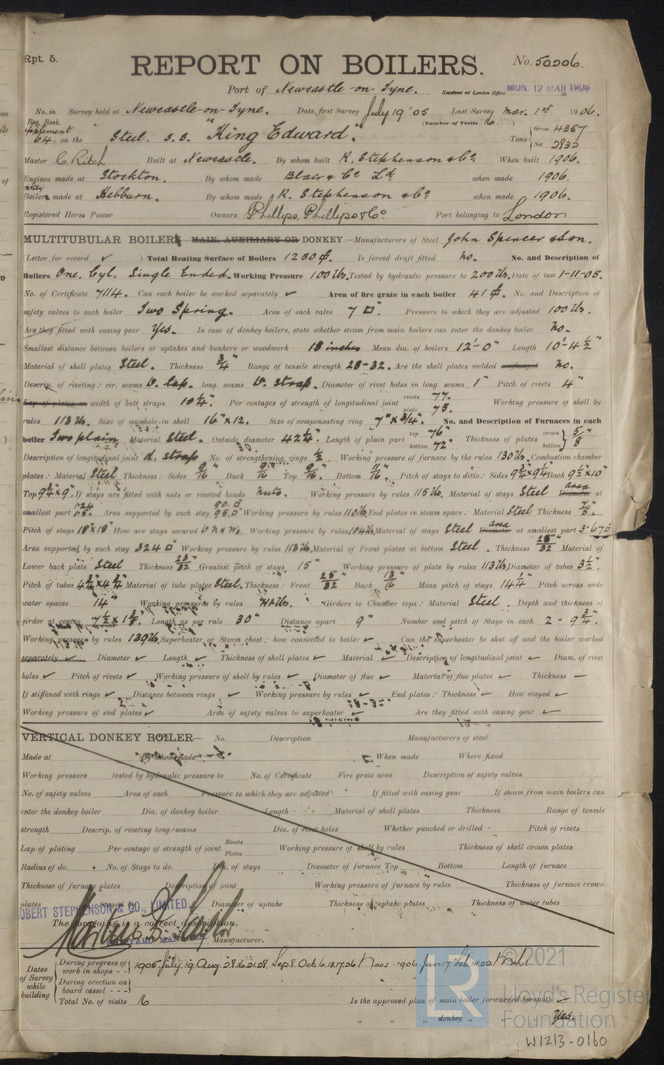 Rpt. 5.
REPORT ON BOILERS.
No. 50206.
Port of Newcastle-on-Tyne.
Received at London Office MON. 12 MAR 1906
No. in Survey held at Newcastle-on-Tyne. Date, first Survey July 19 '05 Last Survey Mar. 1st 1906.
Reg. Book. (Number of Visits 16)
Supplement
64. on the Steel S.S. "King Edward." Tons { Gross 4357
Net 2832
Master C. Ritch Built at Newcastle. By whom built R. Stephenson & Co. When built 1906.
Engines made at Stockton. By whom made Blair & Co Ld when made 1906.
Boilers made at Hebburn. By whom made R. Stephenson & Co. when made 1906.
Registered Horse Power Owners Phillips, Phillips & Co. Port belonging to London
MULTITUBULAR BOILERS MAIN, AUXILIARY OR DONKEY.—Manufacturers of Steel John Spencer & Son.
Letter for record ✓ Total Heating Surface of Boilers 1230 Is forced draft fitted No. No. and Description of
Boilers One, Cyl. Single Ended. Working Pressure 100 lb. Tested by hydraulic pressure to 200 lb. Date of test 1-11-05.
No. of Certificate 7114. Can each boiler be worked separately ✓ Area of fire grate in each boiler 41 No. and Description of
safety valves to each boiler Two Spring. Area of each valve 7 Pressure to which they are adjusted 100 lb.
Are they fitted with easing gear Yes. In case of donkey boilers, state whether steam from main boilers can enter the donkey boiler No.
Smallest distance between boilers or uptakes and bunkers or woodwork 18 inches Mean dia. of boilers 12'-0" Length 10'-4½"
Material of shell plates Steel. Thickness ¾" Range of tensile strength 28-32. Are the shell plates welded No.
Descrip. of riveting: cir. seams D. lap. long. seams D. strap. Diameter of rivet holes in long. seams 1" Pitch of rivets 4"
width of butt straps 10¼" Per centages of strength of longitudinal joint rivets 77. plate 75. Working pressure of shell by
rules 113 lb. Size of manhole in shell 16" x 12. Size of compensating ring 7" x ¾" No. and Description of Furnaces in each
boiler Two plain Material Steel. Outside diameter 42¼" Length of plain part top 76" bottom 72" Thickness of plates crown bottom 5/8
Description of longitudinal joint d. strap No. of strengthening rings Working pressure of furnace by the rules 130 lb. Combustion chamber
plates: Material Steel Thickness: Sides 9/16 Back 9/16 Top 9/16 Bottom 11/16 Pitch of stays to ditto: Sides 9¾ x 9¼ Back 9½ x 10"
Top 9¾ x 9. If stays are fitted with nuts or riveted heads nuts. Working pressure by rules 115 lb. Material of stays Steel area at
smallest part Area supported by each stay Working pressure by rules 110 lb. End plates in steam space: Material Steel Thickness
Pitch of stays 18 x 18 How are stays secured Working pressure by rules 104 lb. Material of stays Steel area at smallest part 3.67
Area supported by each stay 324 Working pressure by rules 113 lb. Material of Front plates at bottom Steel. Thickness 25/32 Material of
Lower back plate Steel Thickness 25/32 Greatest pitch of stays 15" Working pressure of plate by rules 113 lb. Diameter of tubes 3½"
Pitch of tubes 4¾ x 4¾ Material of tube plates Steel. Thickness: Front 25/32 Back 13/16 Mean pitch of stays 14¼" Pitch across wide
water spaces 14" Working pressures by rules Girders to Chamber tops: Material Steel. Depth and thickness of
girder at centre Length as per rule 30" Distance apart 9" Number and pitch of Stays in each 2 - 9¾
Working pressure by rules 139 lb. Superheater or Steam chest; how connected to boiler ✓ Can the superheater be shut off and the boiler worked
separately ✓ Diameter ✓ Length ✓ Thickness of shell plates ✓ Material ✓ Description of longitudinal joint ✓ Diam. of rivet
holes ✓ Pitch of rivets ✓ Working pressure of shell by rules ✓ Diameter of flue ✓ Material of flue plates ✓ Thickness ✓
If stiffened with rings ✓ Distance between rings ✓ Working pressure by rules ✓ End plates: Thickness ✓ How stayed ✓
Working pressure of end plates ✓ Area of safety valves to superheater ✓ Are they fitted with easing gear ✓
VERTICAL DONKEY BOILER— No. Description Manufacturers of steel
Made at By whom made When made Where fixed
Working pressure tested by hydraulic pressure to No. of Certificate Fire grate area Description of safety valves
No. of safety valves Area of each Pressure to which they are adjusted If fitted with easing gear If steam from main boilers can
enter the donkey boiler Dia. of donkey boiler Length Material of shell plates Thickness Range of tensile
strength Descrip. of riveting long. seams Dia. of rivet holes Whether punched or drilled Pitch of rivets
Lap of plating Per centage of strength of joint Rivets Plates Working pressure of shell by rules Thickness of shell crown plates
Radius of do. No. of Stays to do. Dia. of stays Diameter of furnace Top Bottom Length of furnace
Thickness of furnace plates Description of joint Working pressure of furnace by rules Thickness of furnace crown
plates Diameter of uptake Thickness of uptake plates Thickness of water tubes
ROBERT STEPHENSON & CO., LIMITED.
The foregoing is a correct description,
Manufacturer.
Dates of Survey while building
During progress of work in shops - - 1905 July 19 Aug. Sep 8 Oct 6. 13. 17. 26 Nov 1906 Jan 17 Feb
During erection on board vessel - -
Total No. of visits 16 Is the approved plan of main boiler forwarded herewith ✓
" " " donkey " " Yes.
©2021
LR
Lloyd's Register
Foundation
W1213-0160